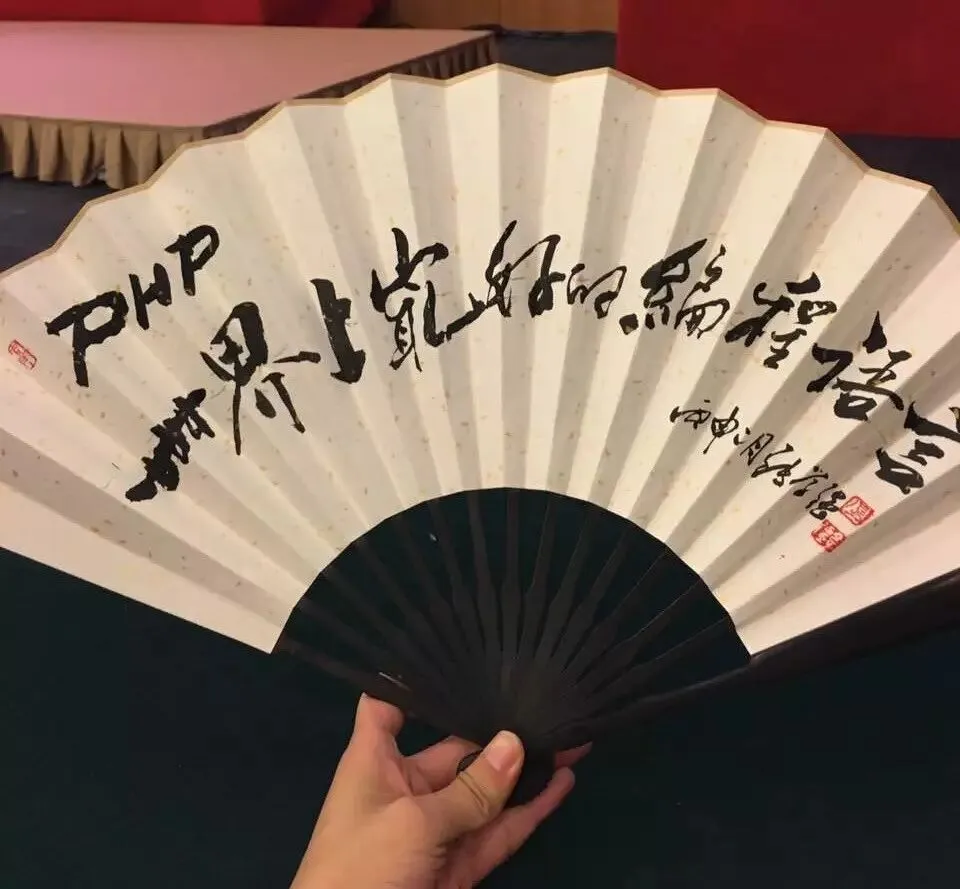 PHP
世界上最好的編程语言
丙申